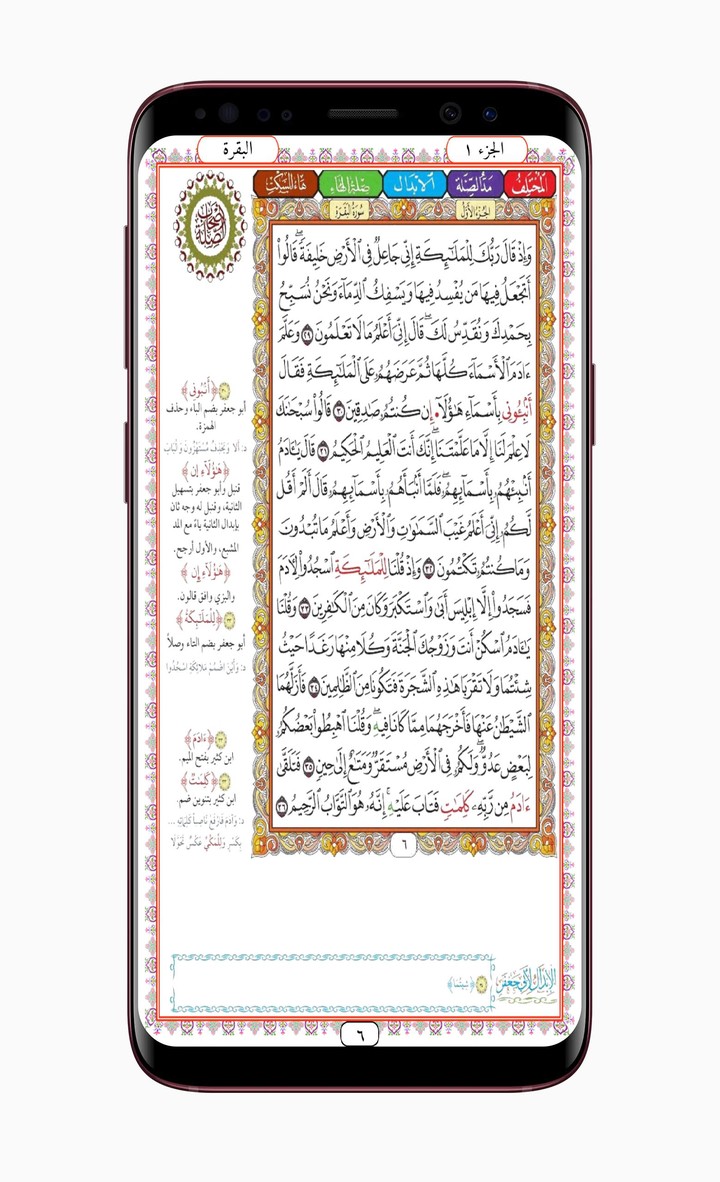 الجزء ١
البقرة
المُخْتَلِف
مَدُّ الصِّلَة
الإبْدَال
صِلَةُ الهَاء
هَاءُ السَّكْت
أصحاب الصلة
الجُزْءُ الأوَّلُ
سُورَةُ البَقَرَةِ
وَإِذْ قَالَ رَبُّكَ لِلْمَلَٰٓئِكَةِ إِنِّي جَاعِلٌ فِي اِ۬لْأَرْضِ خَلِيفَةٗۖ قَالُوٓاْ
أَتَجْعَلُ فِيهَا مَن يُفْسِدُ فِيهَا وَيَسْفِكُ اُ۬لدِّمَآءَ وَنَحْنُ نُسَبِّحُ
بِحَمْدِكَ وَنُقَدِّسُ لَكَۖ قَالَ إِنِّيَ أَعْلَمُ مَا لَا تَعْلَمُونَ ٢٩ وَعَلَّمَ
ءَادَمَ اَ۬لْأَسْمَآءَ كُلَّهَا ثُمَّ عَرَضَهُمُۥ عَلَى اَ۬لْمَلَٰٓئِكَةِ فَقَالَ
أَنۢبِـُٔونِي بِأَسْمَآءِ هَٰٓؤُلَآ• إِن كُنتُمُۥ صَٰدِقِينَ ٣٠ قَالُواْ سُبْحَٰنَكَ
لَا عِلْمَ لَنَآ إِلَّا مَا عَلَّمْتَنَآۖ إِنَّكَ أَنتَ اَ۬لْعَلِيمُ اُ۬لْحَكِيمُ ٣١ قَالَ يَٰٓـَٔادَمُ
أَنۢبِئْهُمُۥ بِأَسْمَآئِهِمُۥۖ فَلَمَّآ أَنۢبَأَهُمُۥ بِأَسْمَآئِهِمُۥ قَالَ أَلَمْ أَقُل
لَّكُمُۥٓ إِنِّيَ أَعْلَمُ غَيْبَ اَ۬لسَّمَٰوَٰتِ وَالْأَرْضِ وَأَعْلَمُ مَا تُبْدُونَ
وَمَا كُنتُمُۥ تَكْتُمُونَ ٣٢ وَإِذْ قُلْنَا لِلْمَلَٰٓئِكَةِ اِ۟سْجُدُواْ لِأٓدَمَ
فَسَجَدُوٓاْ إِلَّآ إِبْلِيسَ أَبَىٰ وَاسْتَكْبَرَ وَكَانَ مِنَ اَ۬لْكَٰفِرِينَ ٣٣ وَقُلْنَا
يَٰٓـَٔادَمُ اُ۟سْكُنْ أَنتَ وَزَوْجُكَ اَ۬لْجَنَّةَ وَكُلَا مِنْهَا رَغَدًا حَيْثُ
شِئْتُمَا وَلَا تَقْرَبَا هَٰذِهِ اِ۬لشَّجَرَةَ فَتَكُونَا مِنَ اَ۬لظَّٰلِمِينَ ٣٤ فَأَزَلَّهُمَا
اَ۬لشَّيْطَٰنُ عَنْهَا فَأَخْرَجَهُمَا مِمَّا كَانَا فِيهِۖ وَقُلْنَا اَ۪هْبِطُواْ بَعْضُكُمُۥ
لِبَعْضٍ عَدُوّٞۖ وَلَكُمُۥ فِي اِ۬لْأَرْضِ مُسْتَقَرّٞ وَمَتَٰعٌ إِلَىٰ حِينٖ ٣٥ فَتَلَقَّىٰٓ
ءَادَمُ مِن رَّبِّهِۦ كَلِمَٰتٖ فَتَابَ عَلَيْهِۚ إِنَّهُۥ هُوَ اَ۬لتَّوَّابُ اُ۬لرَّحِيمُ ٣٦
٦
٣٠ ﴿أَنۢبُونِي﴾
أبو جعفر بضم الباء وحذف
الهمزة.
﴿هَٰٓؤُلَآءِ إِن﴾
قنبل وأبو جعفر بتسهيل
الثانية، وقنبل له وجه ثان
بإبدال الثانية ياءً مع المد
المشبع، والأول أرجح.
﴿هَٰٓؤُلَآءِ إِن﴾
والبزي وافق قالون.
٣٣ ﴿لِلْمَلَٰٓئِكَةُ﴾
أبو جعفر بضم التاء وصلاً
٣٦ ﴿ءَادَمَ﴾
ابن كثير بفتح الميم.
٣٦ ﴿كَلِمَٰتٞ﴾
ابن كثير بتنوين ضم.
الإبدال لأبي جعفر
﴿شِيتُمَا﴾
٦